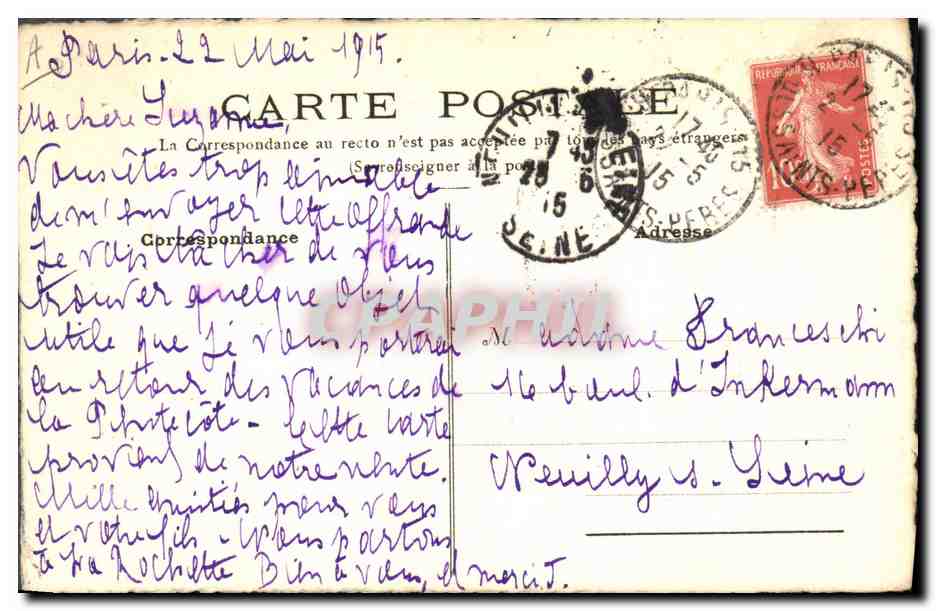 A Paris. 22 Mai 1915
Ma chère Suzanne,
CARTE POSTALE
La Correspondance au recto n'est pas acceptée par tous les pays étrangers
(Se renseigner à la poste)
Vous êtes trop aimable
de m'envoyer cette offrande
Correspondance
Je vais tâcher de vous
trouver quelque objet
utile que je vous porterai
au retour des vacances de
la Pentecôte - Cette carte
provient de notre vente.
Mille amitiés pour vous
et votre fils - Nous partons
à La Rochette Bien à vous, et merci.
Adresse
Madame Franceschi
16 boul. d'Inkermann
Neuilly s. Seine
REPUBLIQUE FRANÇAISE
POSTES
10
SEINE
STS-PERES
CPAPHIL